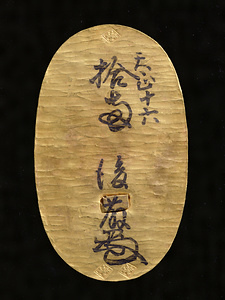 天正十六
拾両後藤